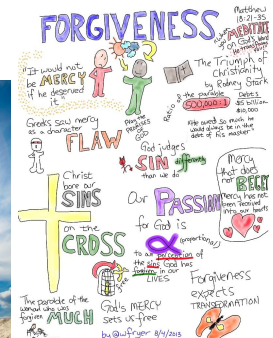 FORGIVENESS
Matthew
18:21-35
MEDITATE
on God's Word
"It would not
be MERCY
if he deserved
it"
The Triumph of
Christianity
by Rodney Stark
Ratio of the parable
Debts
500,000:1
$5 billion
$10,000
Greeks saw mercy
as a character
FLAW
Pray the
PROMISES
of
GOD
debt owed so much he
would always be in the
debt of his master
God judges
SIN differently
than we do
Mercy
that does
not
Mercy has not
been received
into our hearts
Christ
bore our
SINS
on the
CROSS
Our PASSION
for God is
(proportional)
to our perception of
the sins God has
forgiven in our
LIVES
The parable of the
woman who was
forgiven MUCH
God's MERCY
sets us free
Forgiveness
expects
TRANSFORMATION
by @wfryer 8/4/2013